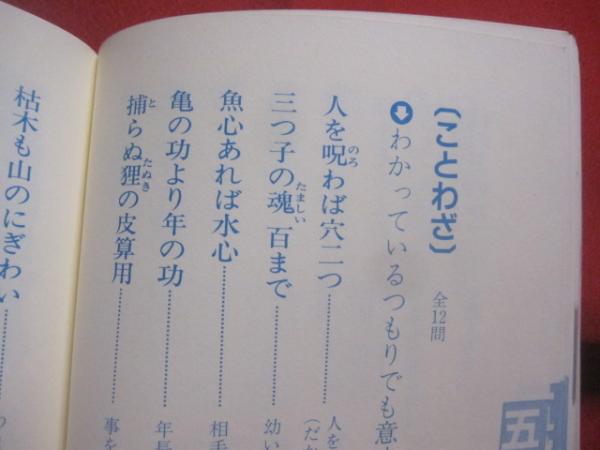 〔ことわざ〕
全12問
わかっているつもりでも意
人を呪わば穴二つ
のろ
三つ子の魂百まで
たましい
魚心あれば水心
亀の功より年の功
捕らぬ狸の皮算用
と
たぬき
枯木も山のにぎわい
人を
幼い
相手
年長
事を
五